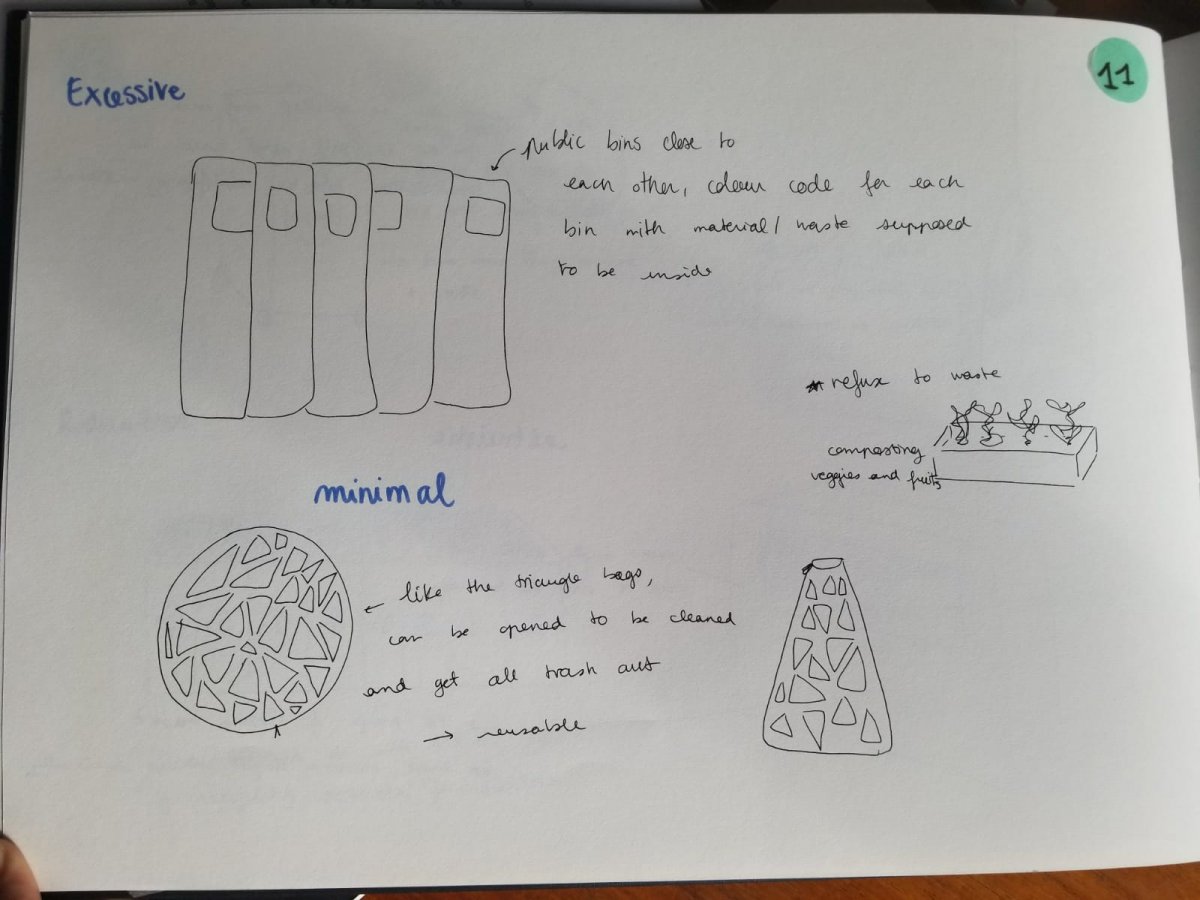 Excessive
11
public bins close to
each other, colour code for each
bin with material/ waste supposed
to be inside
refux to waste
composting
veggies and fruits
minimal
like the triangle bags,
can be opened to be cleaned
and get all trash out
→ reusable